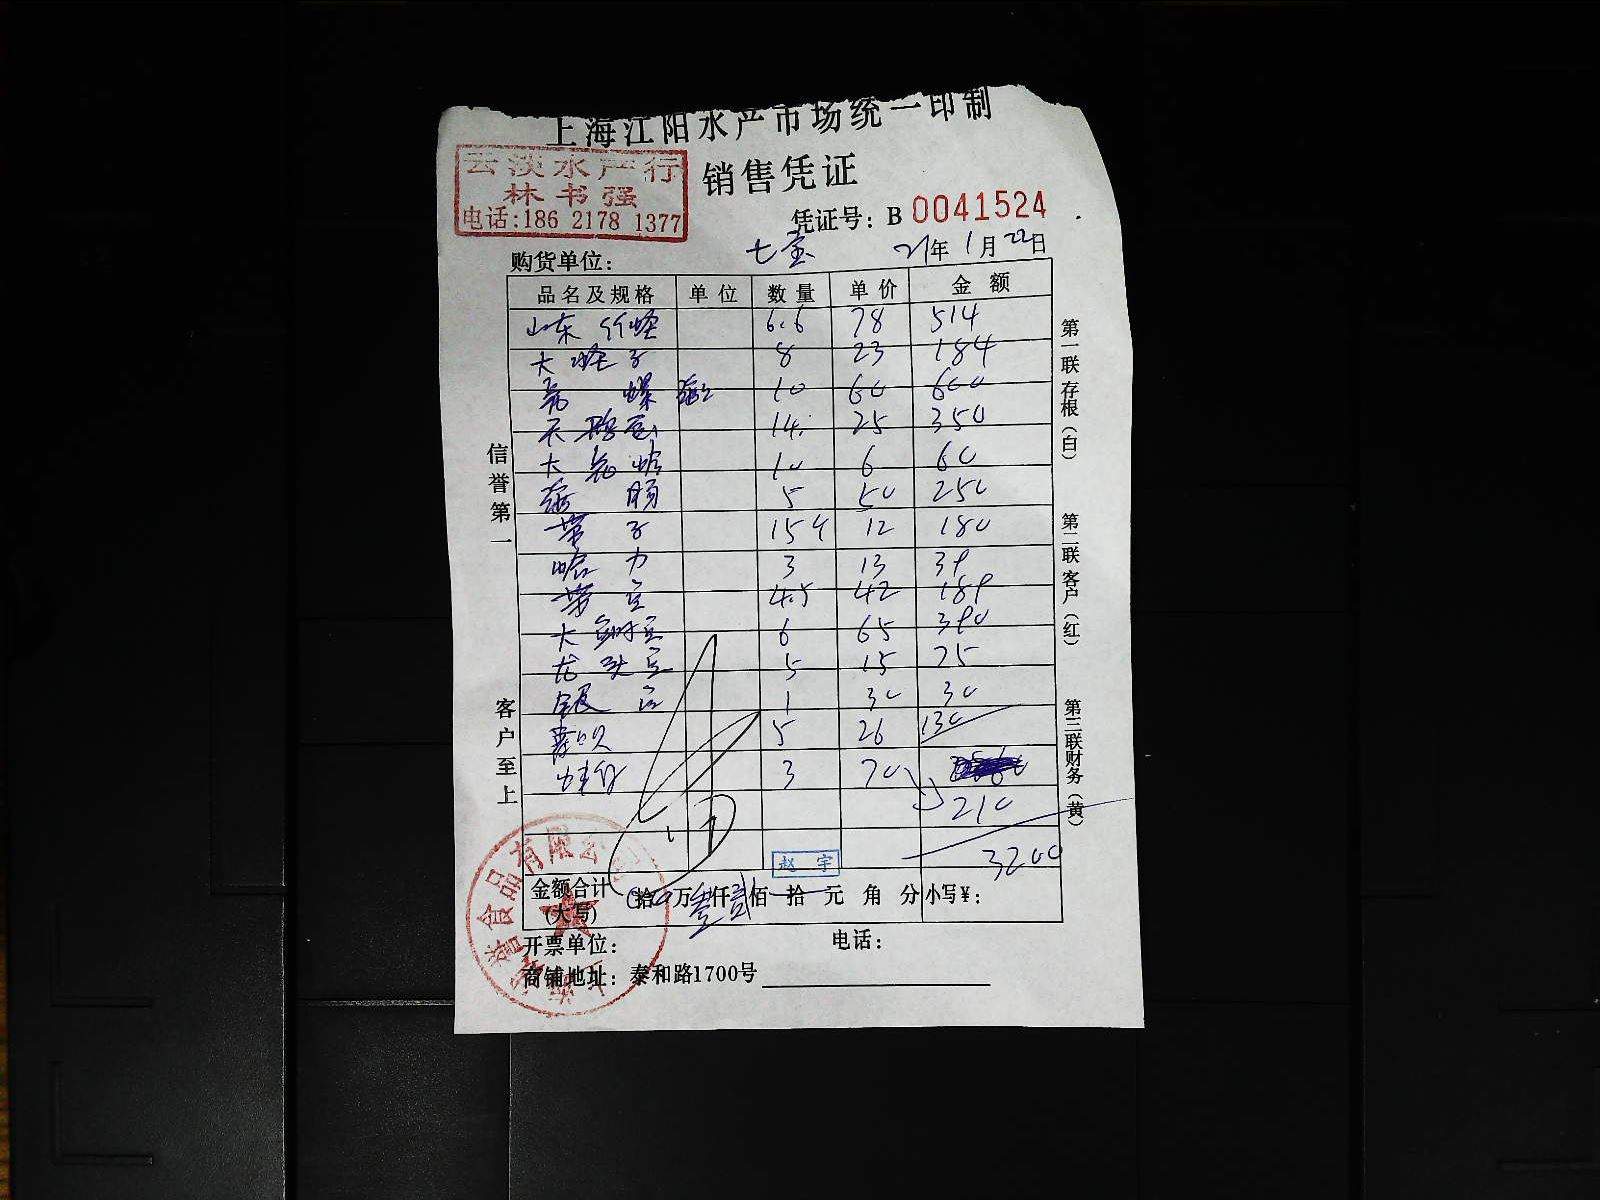 上海江阳水产市场统一印制
云淡水产行
林书强
电话:186 2178 1377
销售凭证
凭证号: B 0041524
购货单位: 七宝 21年1月22日
品名及规格 单位 数量 单价 金额
山东 竹蛏 6.6 78 514
大蛏子 8 23 184
螺 10 60 600
天鹅蛋 14 25 350
大 蛤 10 6 60
海肠 5 50 250
带子 154 12 180
蛤力 3 13 39
带 4.5 42 189
大 6 65 390
龙头 5 15 75
银 1 30 30
5 26 130
3 70
210
3200
赵宇
金额合计 拾 万 壹 仟 贰 佰 拾 元 角 分 小写¥:
(大写)
开票单位: 电话:
商铺地址: 泰和路1700号
信誉第一
客户至上
第一联 存根(白)
第二联 客户(红)
第三联 财务(黄)
食品有限公